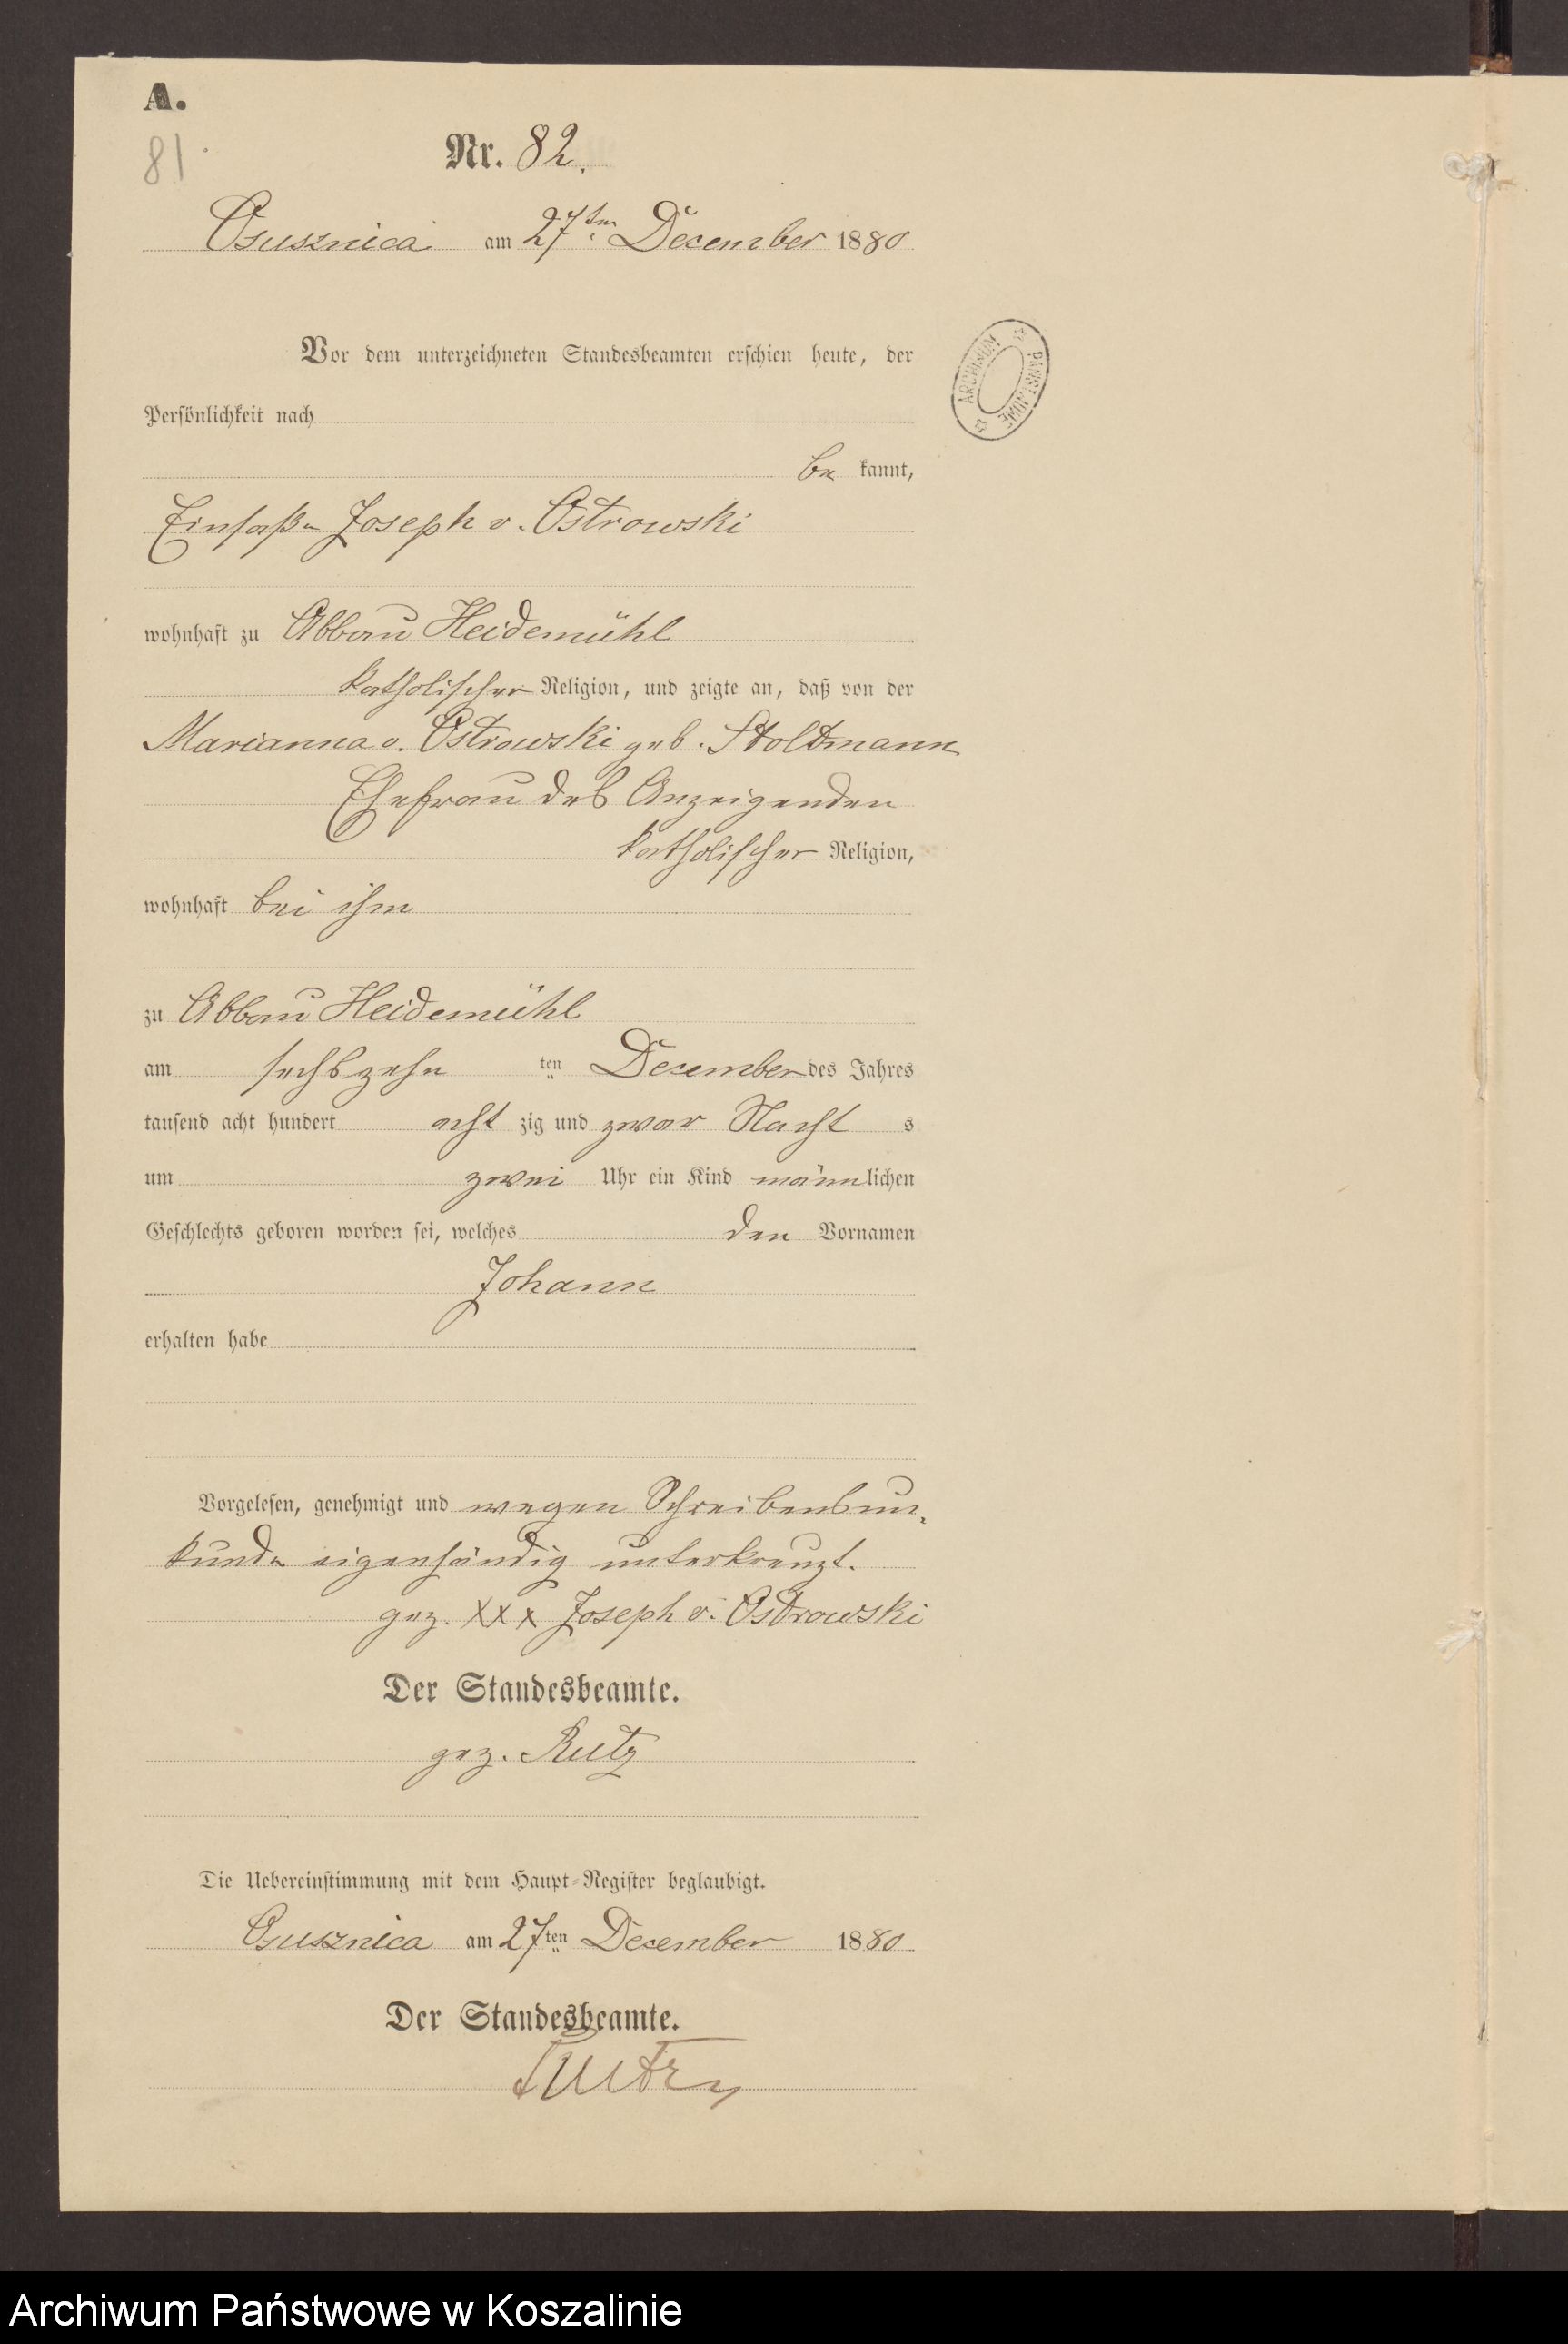 A.
81
Nr. 82.
Osusznica am 27ten December 1880
Vor dem unterzeichneten Standesbeamten erschien heute, der
Persönlichkeit nach
be kannt,
Einsaße Joseph v. Ostrowski
wohnhaft zu Abbau Heidemühl
katholischer Religion, und zeigte an, daß von der
Marianna v. Ostrowski geb. Stoltmann
Ehefrau des Anzeigenden
katholischer Religion,
wohnhaft bei ihm
zu Abbau Heidemühl
am sechszehn ten December des Jahres
tausend acht hundert acht zig und zwar Nacht s
um zwei Uhr ein Kind männlichen
Geschlechts geboren worden sei, welches den Vornamen
Johann
erhalten habe
Vorgelesen, genehmigt und wegen Schreibensun-
kunde eigenhändig unterkreuzt.
gez. XXX Joseph v. Ostrowski
Der Standesbeamte.
gez. Rutz
Die Uebereinstimmung mit dem Haupt-Register beglaubigt.
Osusznica am 27ten December 1880
Der Standesbeamte.
Rutz
ARCHIWUM
Archiwum Państwowe w Koszalinie